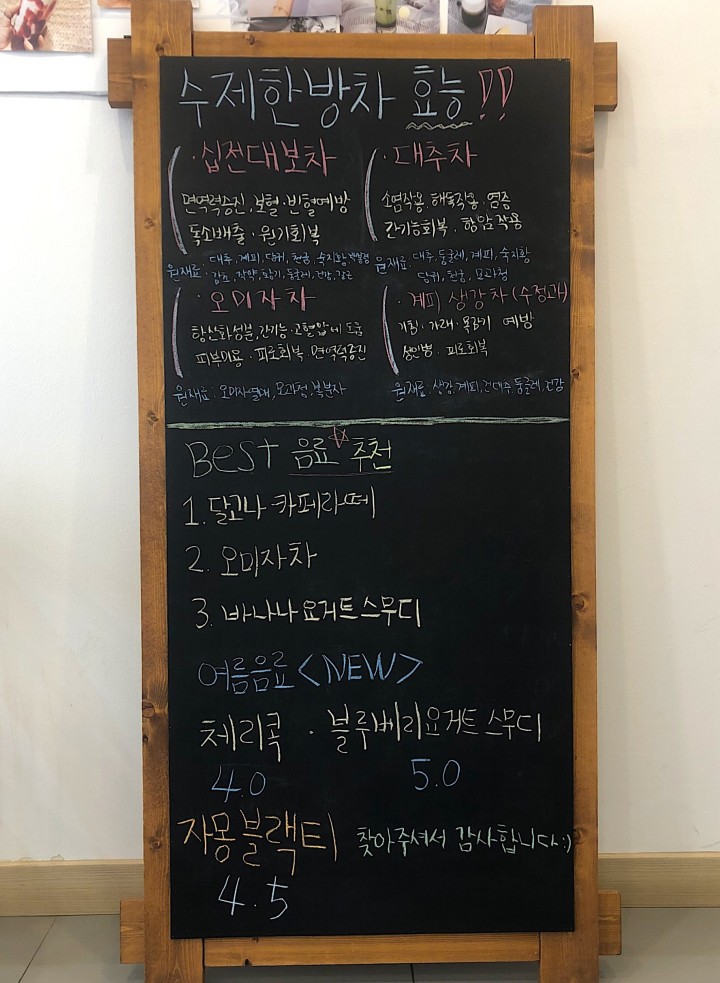 수제한방차 효능!!
· 십전대보차
면역력증진, 보혈·빈혈예방
독소배출 · 원기회복
원재료 : 대추, 계피, 당귀, 천궁, 숙지황, 백봉령
감초, 작약, 황기, 둥글레, 건강, 갈근
· 대추차
소염작용. 해독작용. 염증
간기능회복 · 항암작용
원재료. 대추, 둥글레, 계피, 숙지황
당귀, 천궁, 모과청
· 오미자차
항산화성분, 간기능·고혈압에 도움
피부미용 · 피로회복 면역력증진
원재료 : 오미자열매, 모과청, 복분자
· 계피 생강차(수정과)
기침·가래·목감기 예방
성인병 · 피로회복
원재료. 생강, 계피, 건대추, 둥글레, 건강
Best 음료☆추천
1. 달고나 카페라떼
2. 오미자차
3. 바나나 요거트스무디
여름음료 <NEW>
체리콕 · 블루베리요거트 스무디
4.0 5.0
자몽블랙티 찾아주셔서 감사합니다:)
4.5